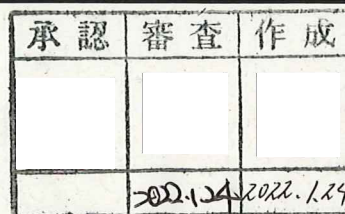 承認 審査 作成
2022.1.24 2022.1.24